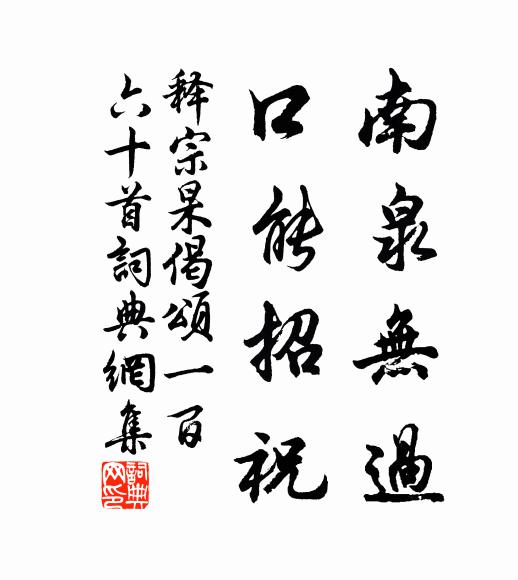 南泉無過
口能招祝
释宗杲偈頌一百
六十首詞典網集
詞典网印